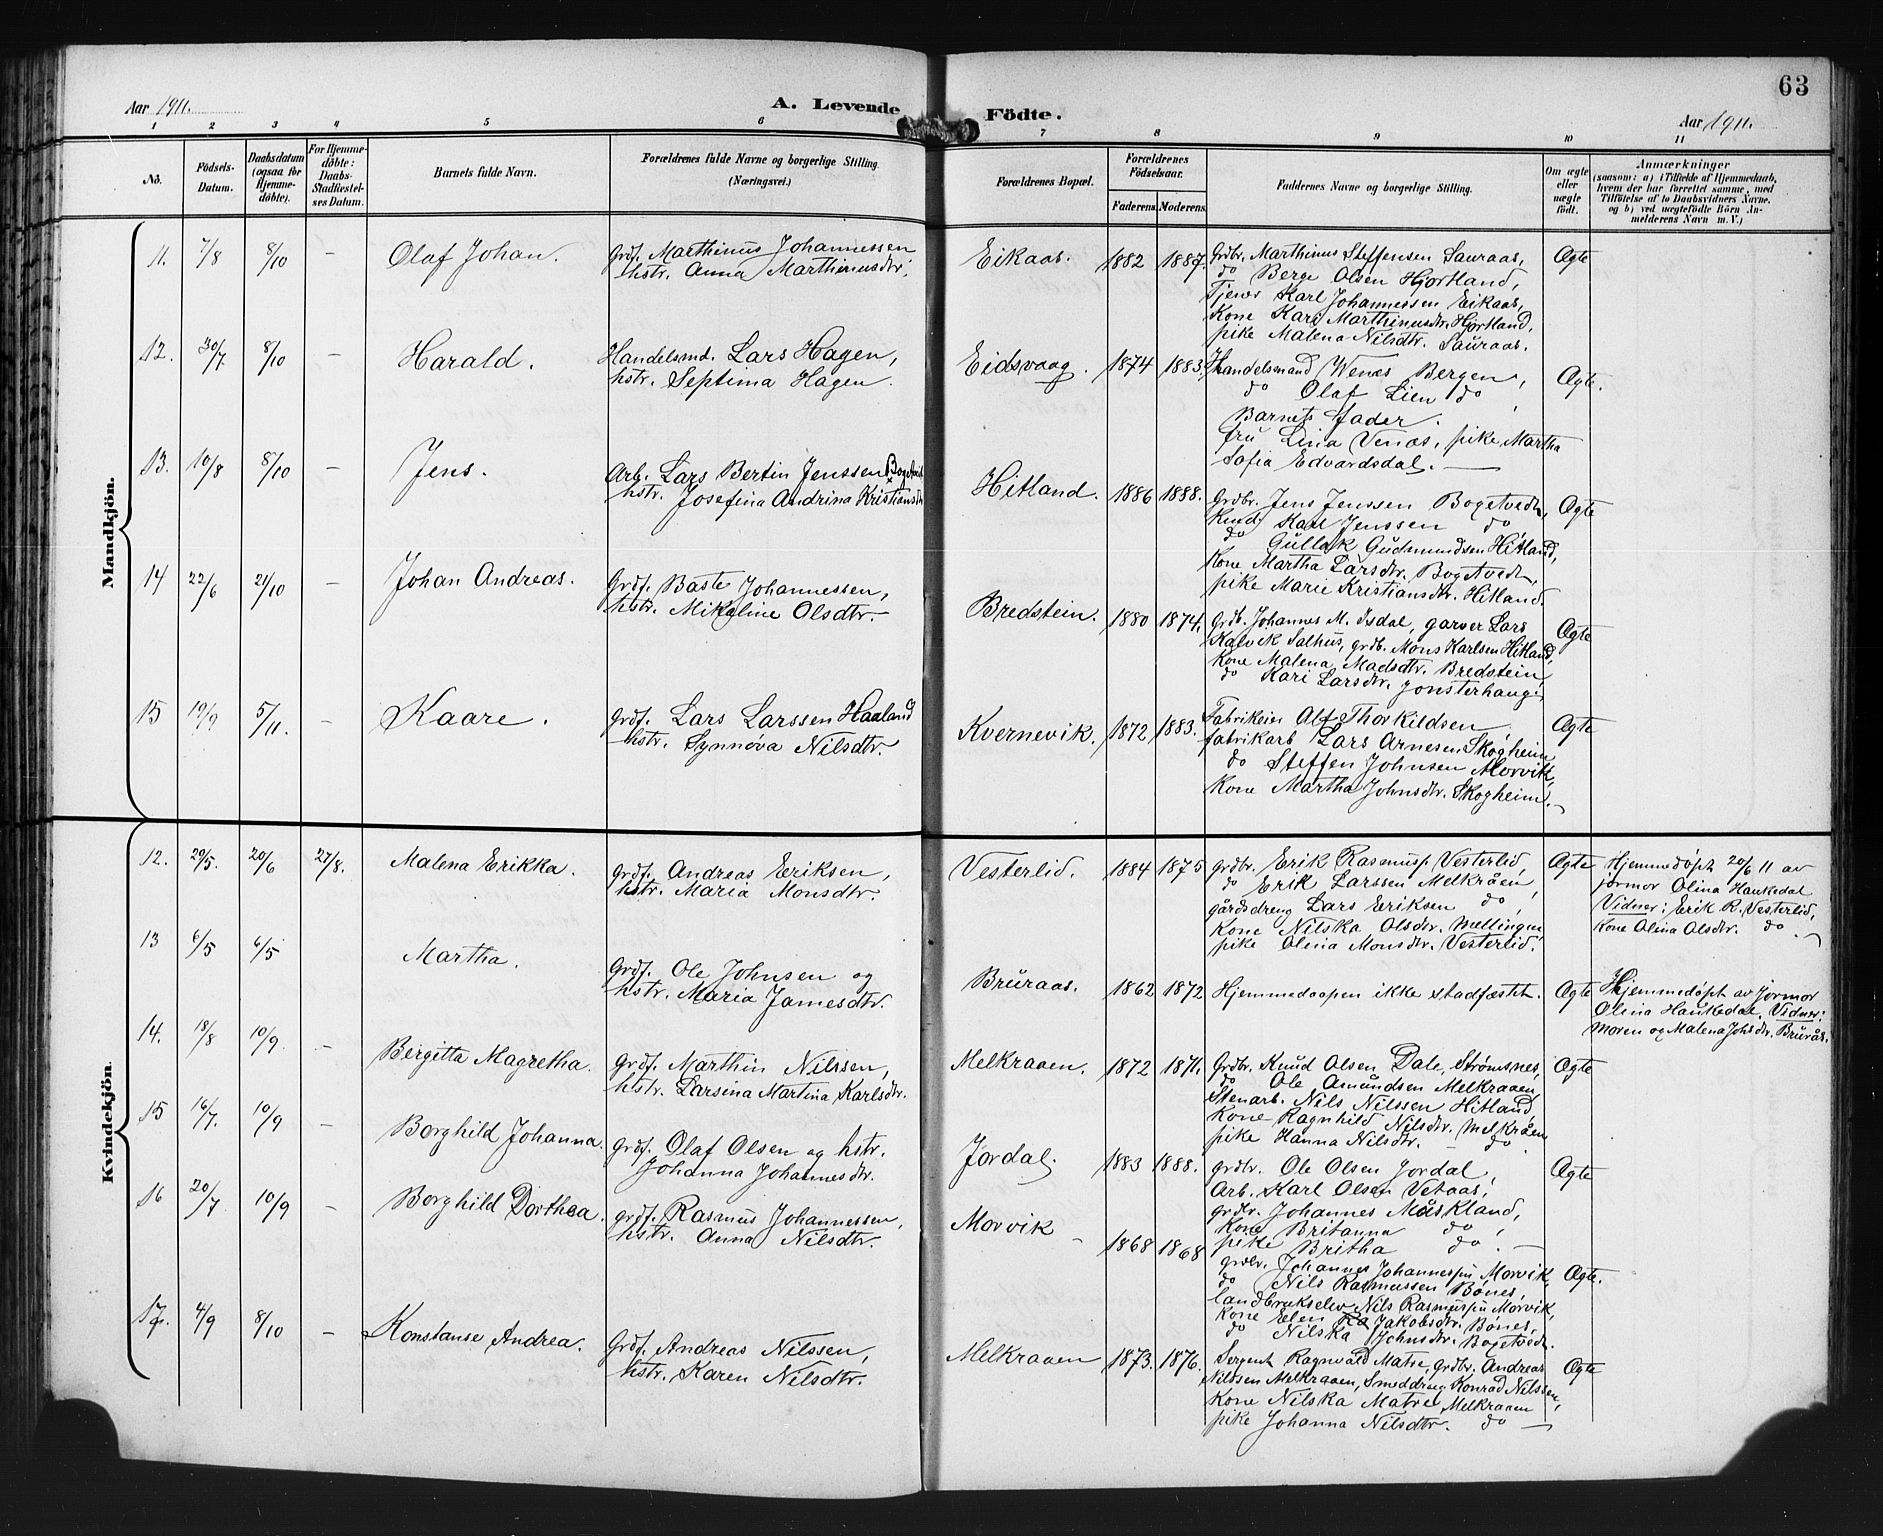 63
Aar 1911.
A. Levende Födte.
Aar 1911.
1 2 3 4 5 6 7 8 9 10 11
No.
Födsels-Datum.
Daabsdatum (ogsaa for Hjemme-døbte).
For Hjemme-døbte: Daabs-Stadfæstel-ses Datum.
Barnets fulde Navn.
Forældrenes fulde Navne og borgerlige Stilling.
(Næringsvei.)
Forældrenes Bopæl.
Forældrenes Födselsaar.
Faderens. Moderens.
Faddernes Navne og borgerlige Stilling.
Om ægte eller uægte født.
Anmærkninger
(saasom: a) i Tilfælde af Hjemmedaab,
hvem der har forrettet samme, med
Tilføielse af to Daabsvidners Navne,
og b) ved uægtefödte Börn An-
melderens Navn m. V.)
Mandkjön.
11. 7/8 8/10 — Olaf Johan.
Grdf. Marthinus Johannessen
hstr. Anna Marthinusdtr.
Eikaas. 1882 1887.
Grdbr. Marthinus Steffensen Sauraas,
do Berge Olsen Hjortland,
Tjener Karl Johannessen Eikaas,
Kone Kari Marthinusdtr. Hjortland,
pike Malena Nilsdtr. Sauraas.
Ægte
12. 30/7 8/10 — Harald.
Handelsmd. Lars Hagen,
hstr. Septima Hagen.
Eidsvaag. 1874 1883.
Handelsmand Wenæs Bergen,
do Olaf Lien do
Barnets Fader.
Fru Lina Venæs, pike Martha
Sofia Edvardsdal. —
Ægte.
13. 10/8 8/10 — Jens.
Arb. Lars Bertin Jenssen
hstr. Josefina Andrina
Hitland. 1886 1888.
Grdbr. Jens Jenssen Bogetvedt,
Karl Jenssen do
do Gullak Gudmundsen Hitland,
Kone Martha Larsdtr. Bogetvedt,
pike Marie Kristiansdtr. Hitland.
Ægte
14 22/6 21/10 — Johan Andreas.
Grdf. Baste Johannessen,
hstr. Mikaline Olsdtr.—
Bredstein. 1880 1874.
Grdb. Johannes M. Isdal, garver Lars
Kalvik Salhus, grdb. Mons Karlsen Hitland,
Kone Malena Madsdtr. Bredstein,
do Kari Larsdtr.
Ægte
15 19/9 5/11. — Kaare.
Grdf. Lars Larssen Haaland
hstr. Synnøva Nilsdtr.
Kvernevik. 1872 1883.
Alf Thorkildsen
fabrikarb Lars Arnesen Skogheim,
do Steffen Johnsen Morvik,
Kone Martha Johnsdtr. Skogheim.
Ægte
Kvindekjön.
12. 29/5. 20/6 27/8. Malena Erikka.
grdf. Andreas Eriksen,
hstr. Maria Monsdtr.
Vesterlid. 1884 1875
grdbr. Erik Rasmusp. Vesterlid
do Erik Larssen Melkråen,
gårdsdreng Lars Eriksen do,
Kone Nilska Olsdtr. Mellingen,
pike Olina Monsdtr. Vesterlid.
Ægte
Hjemmedøpt 20/6 11 av
jormor Olina Haukedal
Vidner: Erik R. Vesterlid,
Kone Olina Olsdtr. do.
13 6/5 6/5 Martha.
Grdf. Ole Johnsen og
hstr. Maria Jamesdtr.
Bruraas. 1862 1872
Hjemmedaapen ikke stadfæstet.
Ægte
Hjemmedøpt av Jormor
Olina Haukedal, Vidner:
Moren og Malena Johsdtr. Brurås.
14. 18/8 10/9. — Bergitta Magretha.
Grdf. Marthin Nilssen,
hstr. Larsina Martina Karlsdtr.
Melkraaen. 1872 1871.
Grdbr. Knud Olsen Dale, Strømsnes,
do Ole Amundsen Melkraaen,
Stenarb. Nils Nilssen Hitland,
Kone Ragnhild Nilsdtr. Melkråen,
pike Hanna Nilsdtr. do.
Ægte
15 16/7. 10/9 — Borghild Johanna.
Grdf. Olaf Olsen og hstr.
Johanna Johannesdtr.
Jordal. 1883 1888.
grdbr. Ole Olsen Jordal,
Arb. Karl Olsen Vetaas,
grdbr. Johannes Måskland,
Kone Britanna do,
pike Britha do. —
Ægte
16 20/7 10/9 — Borghild Dorthea.
grdf. Rasmus Johannessen,
hstr. Anna Nilsdtr.
Morvik — 1868 1868
grdbr. Johannes Johannessen Morvik,
do Nils Rasmussen Bønes,
landbrukselev Nils Rasmussen Morvik,
Kone Elen Jakobsdtr. Bønes,
do Nilska Johnsdtr. Bogetvedt.
Ægte.
17. 4/9 8/10 — Konstanse Andrea.
Grdf. Andreas Nilssen,
hstr. Karen Nilsdtr.
Melkraaen 1873. 1876.
Sergent Ragnvald Matre, Grdbr. Andreas
Nilssen Melkraaen, Smeddreng Konrad Nilssen,
Kone Nilska Matre, Melkraaen
pike Johanna Nilsdtr. do —
Ægte